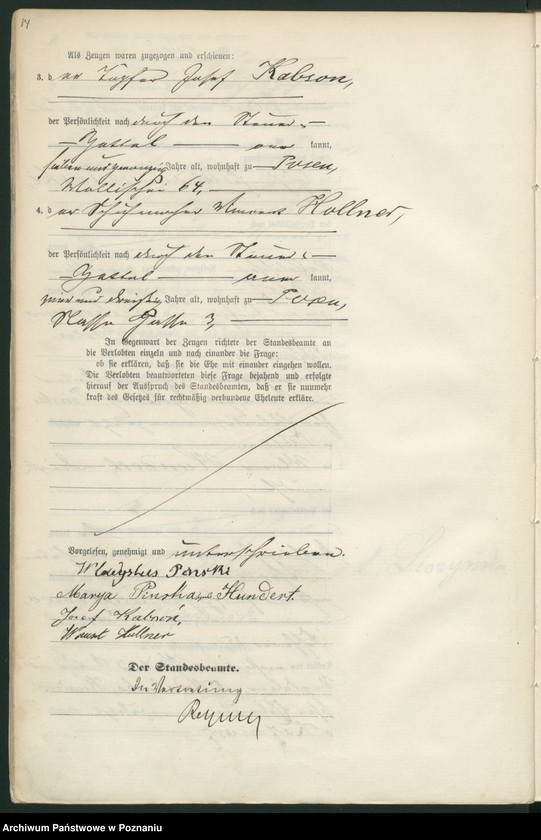 14
Als Zeugen waren zugezogen und erschienen:
3. der Töpfer Josef Kabson,
der Persönlichkeit nach durch den Steuer-
Zettel anerkannt,
sieben und zwanzig Jahre alt, wohnhaft zu Posen,
Wallischei 64,
4. der Schuhmacher Hollner,
der Persönlichkeit nach durch den Steuer-
Zettel anerkannt,
zwei und dreißig Jahre alt, wohnhaft zu Posen,
Gasse 3,
In Gegenwart der Zeugen richtete der Standesbeamte an
die Verlobten einzeln und nach einander die Frage:
ob sie erklären, daß sie die Ehe mit einander eingehen wollen.
Die Verlobten beantworteten diese Frage bejahend und erfolgte
hierauf der Ausspruch des Standesbeamten, daß er sie nunmehr
kraft des Gesetzes für rechtmäßig verbundene Eheleute erkläre.
Vorgelesen, genehmigt und unterschrieben.
Wladyslus Pinski
Marya Pinska geb Hundert.
Josef Kabson,
Hollner
Der Standesbeamte.
In Vertretung
Archiwum Państwowe w Poznaniu